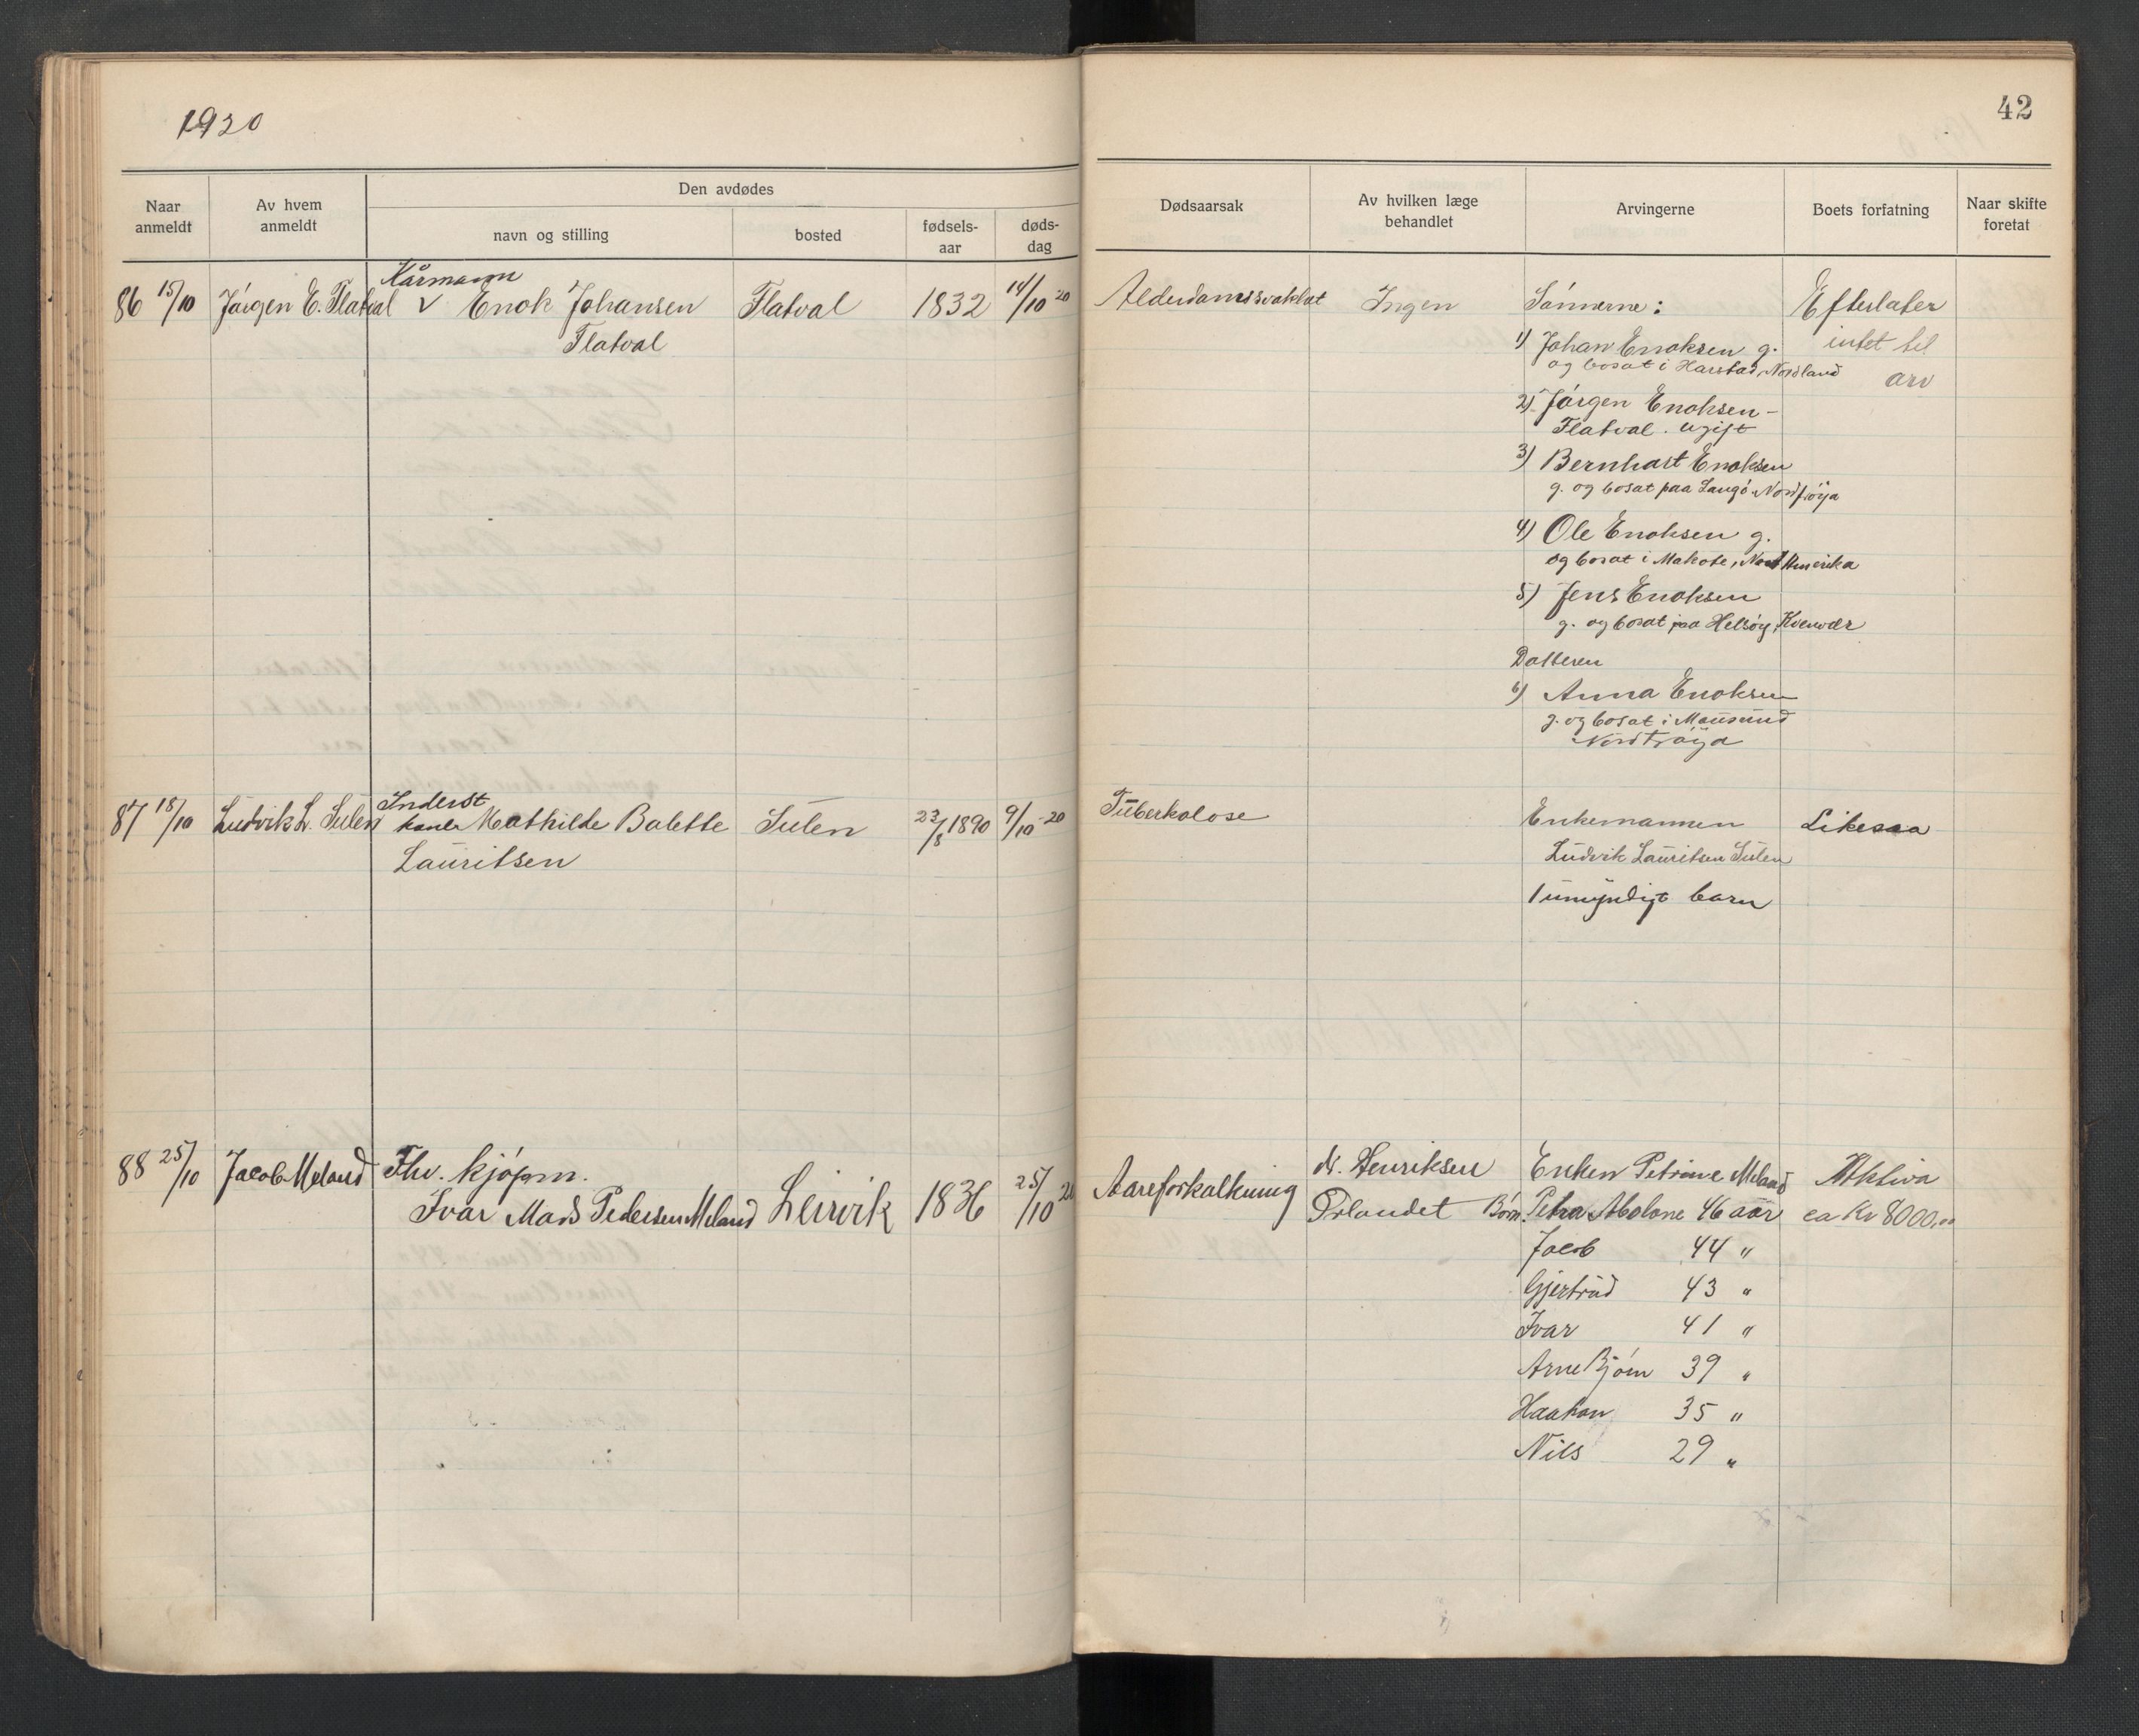 1920
42
Naar anmeldt
Av hvem anmeldt
Den avdødes
navn og stilling
bosted
fødsels-aar
døds-dag
Dødsaarsak
Av hvilken læge behandlet
Arvingerne
Boets forfatning
Naar skifte foretat
86 15/10 Jørgen E. Flatval
Kårmann
v Enok Johansen
Flatval
Flatval
1832
14/10 20
Alderdomssvakhet
Ingen
Sønnerne:
1) Johan Enoksen g.
og bosat i Harstad, Nordland
2) Jørgen Enoksen -
Flatval. ugift
3) Bernhart Enoksen
g. og bosat paa Langö Nordfröya
4) Ole Enoksen g.
og bosat i Makote, Nord Amerika
5) Jens Enoksen
g. og bosat paa Helsøy, Kvenvær
Datteren
6) Anna Enoksen
g. og bosat i Mausund
Nordfröya
Efterlater
intet til
arv
87 18/10 Ludvik L. Sulen
Inderst
kone Mathilde Bolette
Lauritsen
Sulen
23/8 1890
9/10 20
Tuberkolose
Enkemannen
Ludvik Lauritsen Sulen
1 umyndigt barn
Likesaa
88 25/10 Jacob Meland
Fhv. kjøpm.
Ivar Mads Pedersen Meland
Leirvik
1836
25/10 20
Aareforkalkning
dr. Henriksen
Ørlandet
Enken Petrine Meland
Børn: Petra Abolone 46 aar
Jacob 44 "
Gjertrud 43 "
Ivar 41 "
Arne Bjørn 39 "
Haakon 35 "
Nils 29 "
Aktiva
ca Kr 8000,00